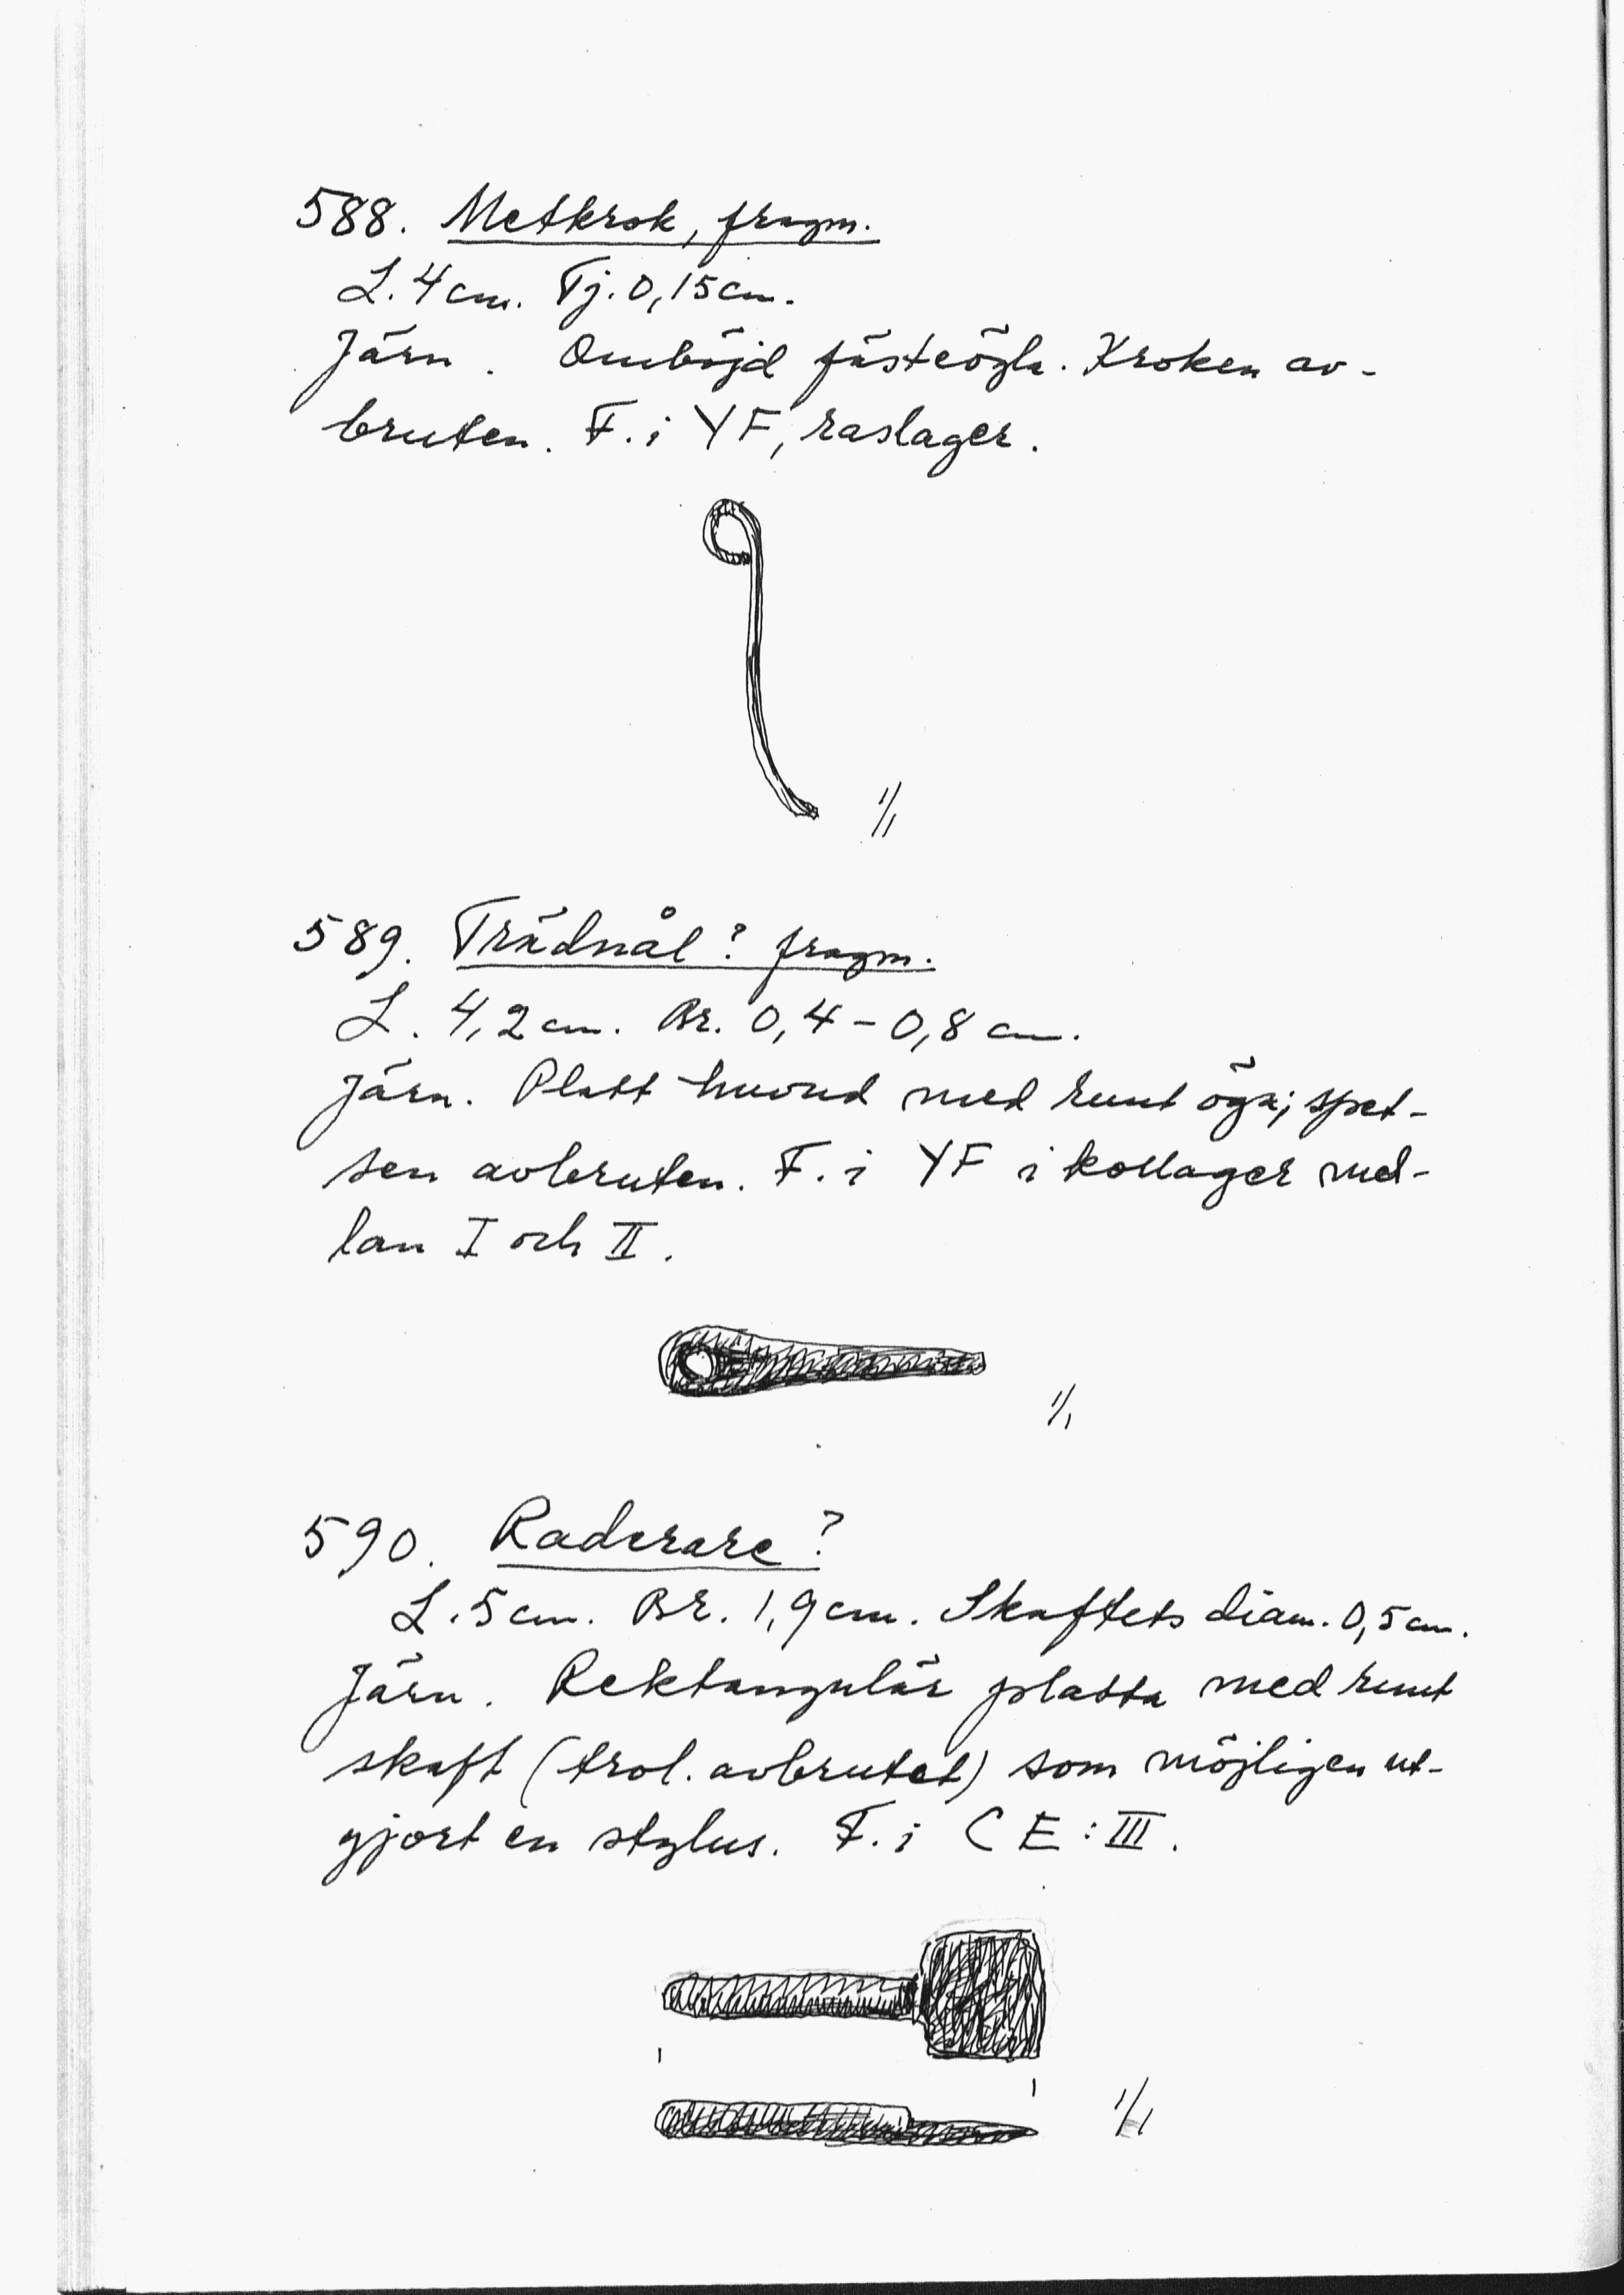 588. Metkrok, fragm.
L. 4 cm. Tj. 0,15 cm.
Järn. Omböjd fästeögla. Kroken av-
bruten. F. i YF, raslager.
1/1
589. Trädnål? fragm.
L. 4,2 cm. Br. 0,4 – 0,8 cm.
Järn. Platt huvud med runt öga; spet-
sen avbruten. F. i YF i kollager mel-
lan I och II.
1/1
590. Raderare?
L. 5 cm. Br. 1,9 cm. Skaftets diam. 0,5 cm.
Järn. Rektangulär platta med runt
skaft (trol. avbrutet) som möjligen ut-
gjort en stylus. F. i CE: III.
1/1